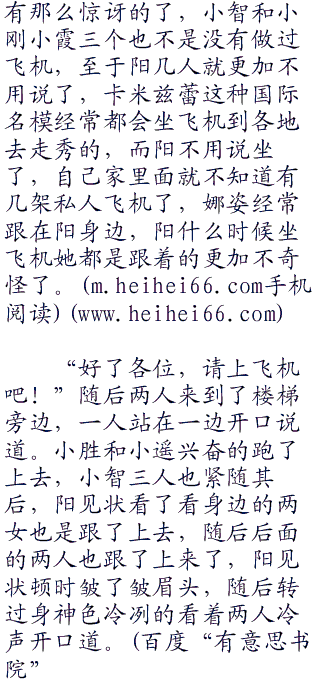 有那么惊讶的了，小智和小
刚小霞三个也不是没有做过
飞机，至于阳几人就更加不
用说了，卡米兹蕾这种国际
名模经常都会坐飞机到各地
去走秀的，而阳不用说坐
了，自己家里面就不知道有
几架私人飞机了，娜姿经常
跟在阳身边，阳什么时候坐
飞机她都是跟着的更加不奇
怪了。(m.heihei66.com手机
阅读)(www.heihei66.com)
“好了各位，请上飞机
吧！”随后两人来到了楼梯
旁边，一人站在一边开口说
道。小胜和小遥兴奋的跑了
上去，小智三人也紧随其
后，阳见状看了看身边的两
女也是跟了上去，随后后面
的两人也跟了上来了，阳见
状顿时皱了皱眉头，随后转
过身神色冷冽的看着两人冷
声开口道。(百度“有意思书
院”